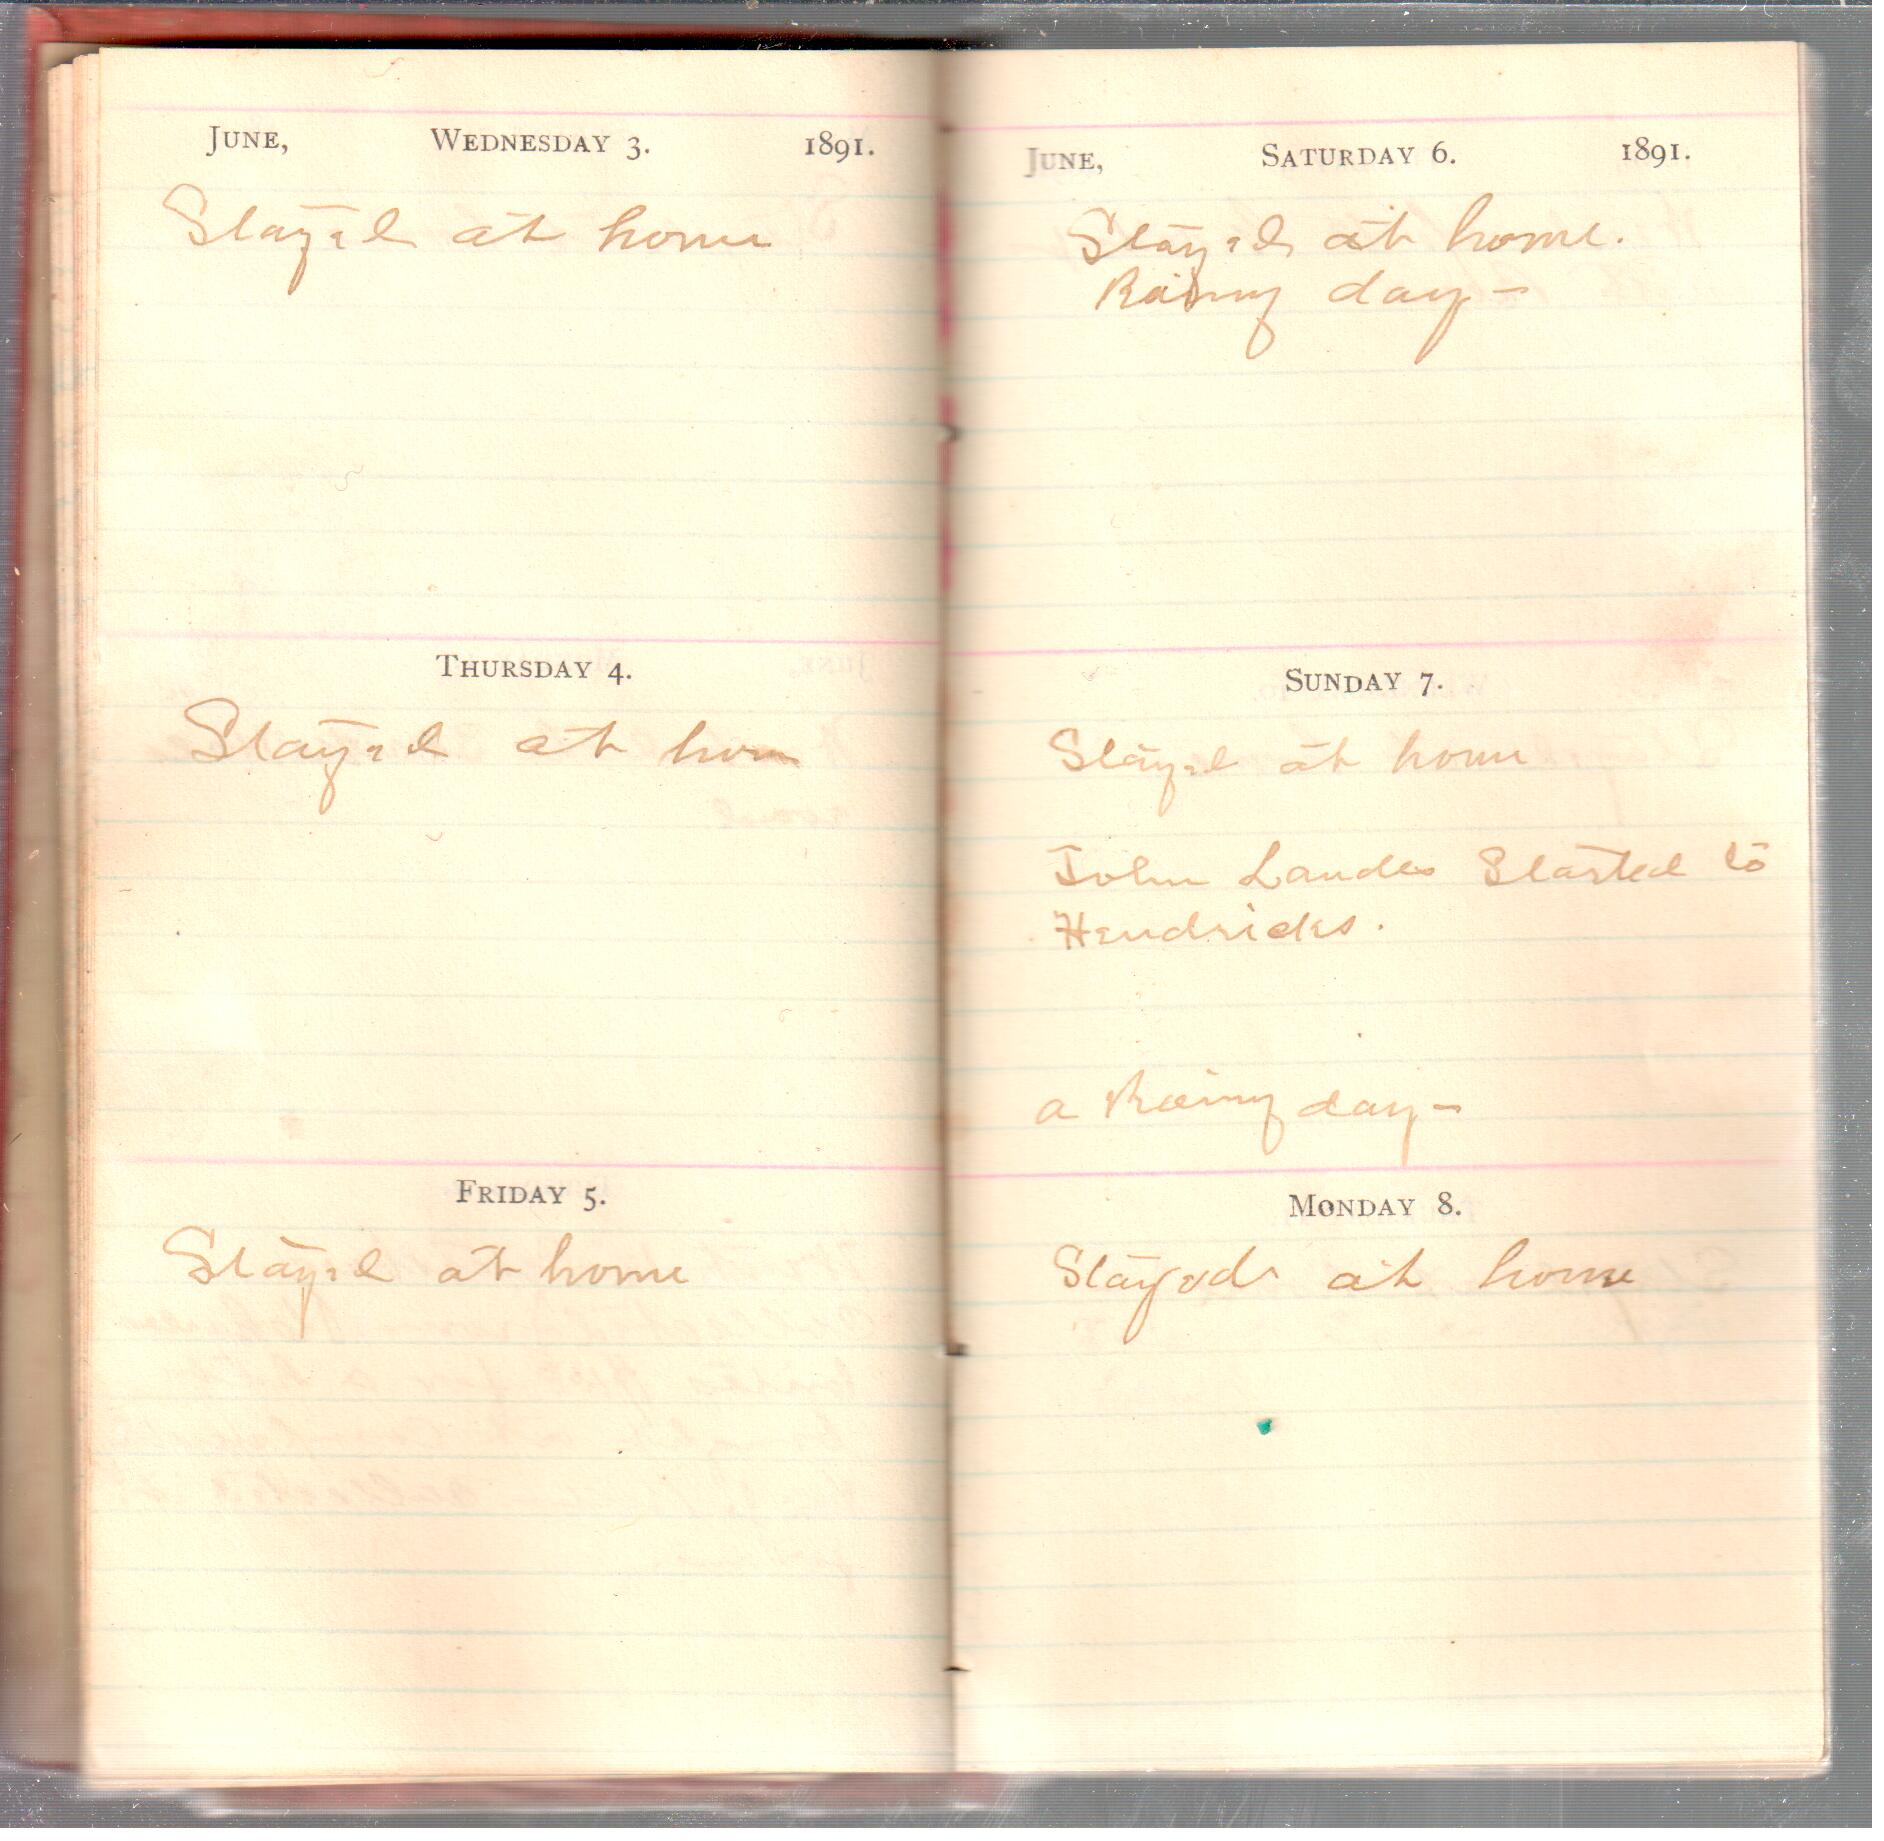 JUNE, WEDNESDAY 3. 1891.
Stayed at home
THURSDAY 4.
Stayed at home
FRIDAY 5.
Stayed at home
JUNE, SATURDAY 6. 1891.
Stayed at home.
Rainy day –
SUNDAY 7.
Stayed at home
John Landes Started to
Hendricks.
a Rainy day –
MONDAY 8.
Stayed at home